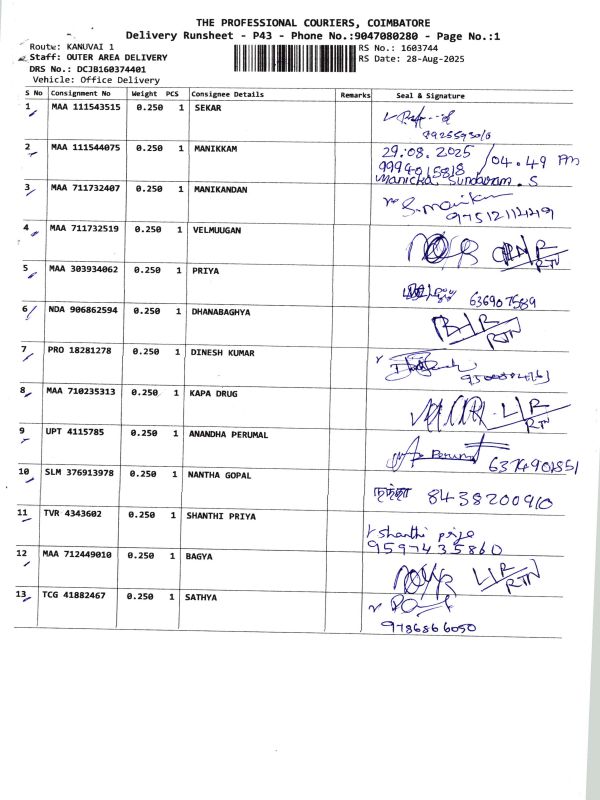 THE PROFESSIONAL COURIERS, COIMBATORE
Delivery Runsheet - P43 - Phone No.:9047080280 - Page No.:1
Route: KANUVAI 1 RS No.: 1603744
Staff: OUTER AREA DELIVERY RS Date: 28-Aug-2025
DRS No.: DCJB160374401
Vehicle: Office Delivery
S No Consignment No Weight PCS Consignee Details Remarks Seal & Signature
1 MAA 111543515 0.250 1 SEKAR
2 MAA 111544075 0.250 1 MANIKKAM 29.08.2025 / 04.49 PM
9994015818
Manicka Sundaram. S
3 MAA 711732407 0.250 1 MANIKANDAN S. Manikan
4 MAA 711732519 0.250 1 VELMUUGAN
RTN
5 MAA 303934062 0.250 1 PRIYA 6369075839
6 NDA 906862594 0.250 1 DHANABAGHYA
RTN
7 PRO 18281278 0.250 1 DINESH KUMAR
8 MAA 710235313 0.250 1 KAPA DRUG L/R
RTN
9 UPT 4115785 0.250 1 ANANDHA PERUMAL A. Perumal 6374901851
10 SLM 376913978 0.250 1 NANTHA GOPAL 8438200910
11 TVR 4343602 0.250 1 SHANTHI PRIYA shanthi priya
9597435860
12 MAA 712449010 0.250 1 BAGYA L/R
RTN
13 TCG 41882467 0.250 1 SATHYA
9786866050